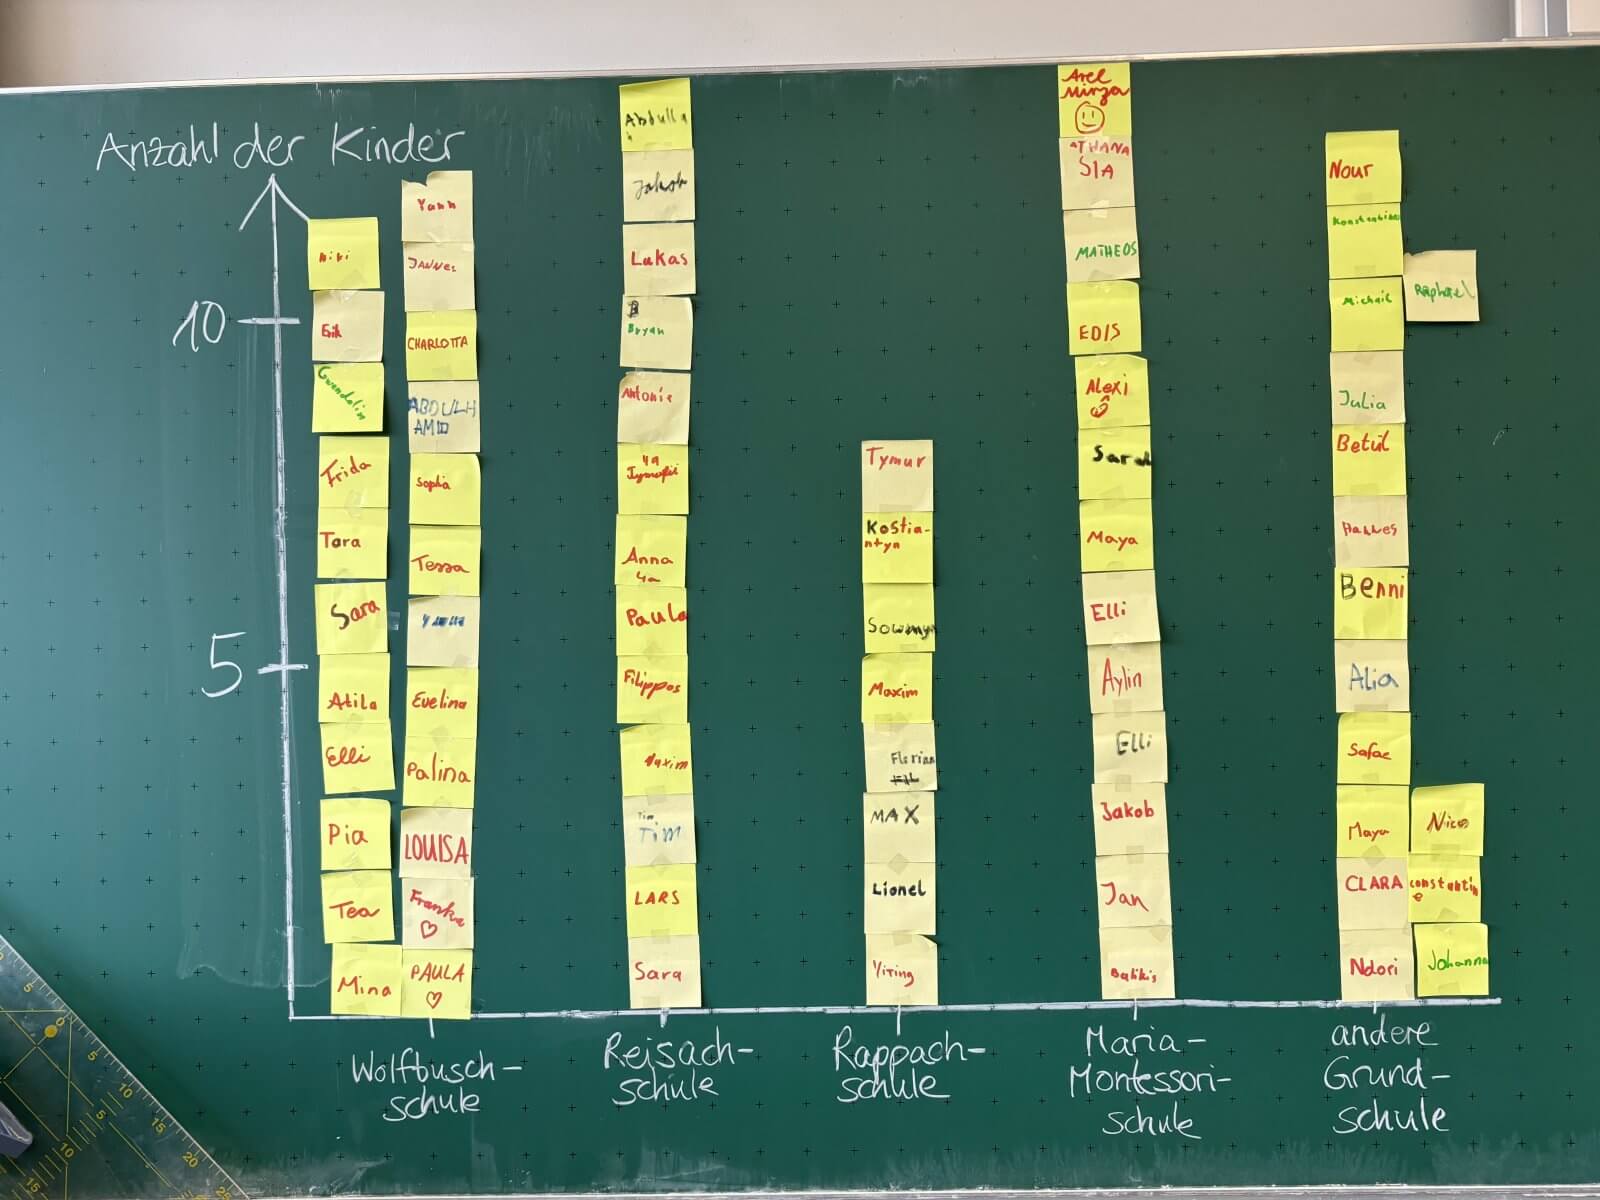 Anzahl der Kinder
10
5
Nivi
Erik
Gwendolin
Frida
Tara
Sara
Atila
Elli
Pia
Tea
Mina
Yann
JANNES
CHARLOTTA
ABDULH
AMID
Sophia
Tessa
Evelina
Palina
LOUISA
Franka
PAULA
Wolfbusch-
schule
Abdulla
h
Jakob
Lukas
B
Bryan
Antonia
4a
Tymofii
Anna
4a
Paula
Filippos
Maxim
Tim
TIM
LARS
Sara
Reisach-
schule
Tymur
Kostia-
ntyn
Sowmya
Maxim
Florian
MAX
Lionel
Yiting
Rappach-
schule
Arel
Mirza
ATHANA
SIA
MATHEOS
EDIS
Alexi
Sarah
Maya
Elli
Aylin
Elli
Jakob
Jan
Balikis
Maria-
Montessori-
schule
Nour
Konstantinos
Michail
Raphael
Julia
Betül
Hannes
Benni
Alia
Safae
Maya
CLARA
Ndori
Nicos
constantin
e
Johanna
andere
Grund-
schule
5
0
5
10
15
20
25
5
10
15